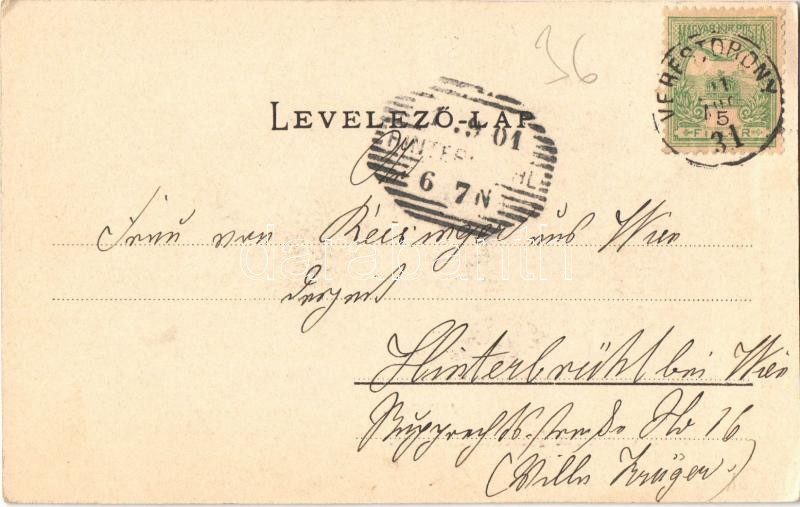 36
MAGYAR KIR. POSTA
VERESTORONY
31
FILLÉR
LEVELEZŐ-LAP
01
HINTERBRÜHL
6 7N
Frau von Reisinger aus Wien
derzeit
Hinterbrühl bei Wien
Rupprechtsstraße No 16
(Villa Krüger.)
darabanth